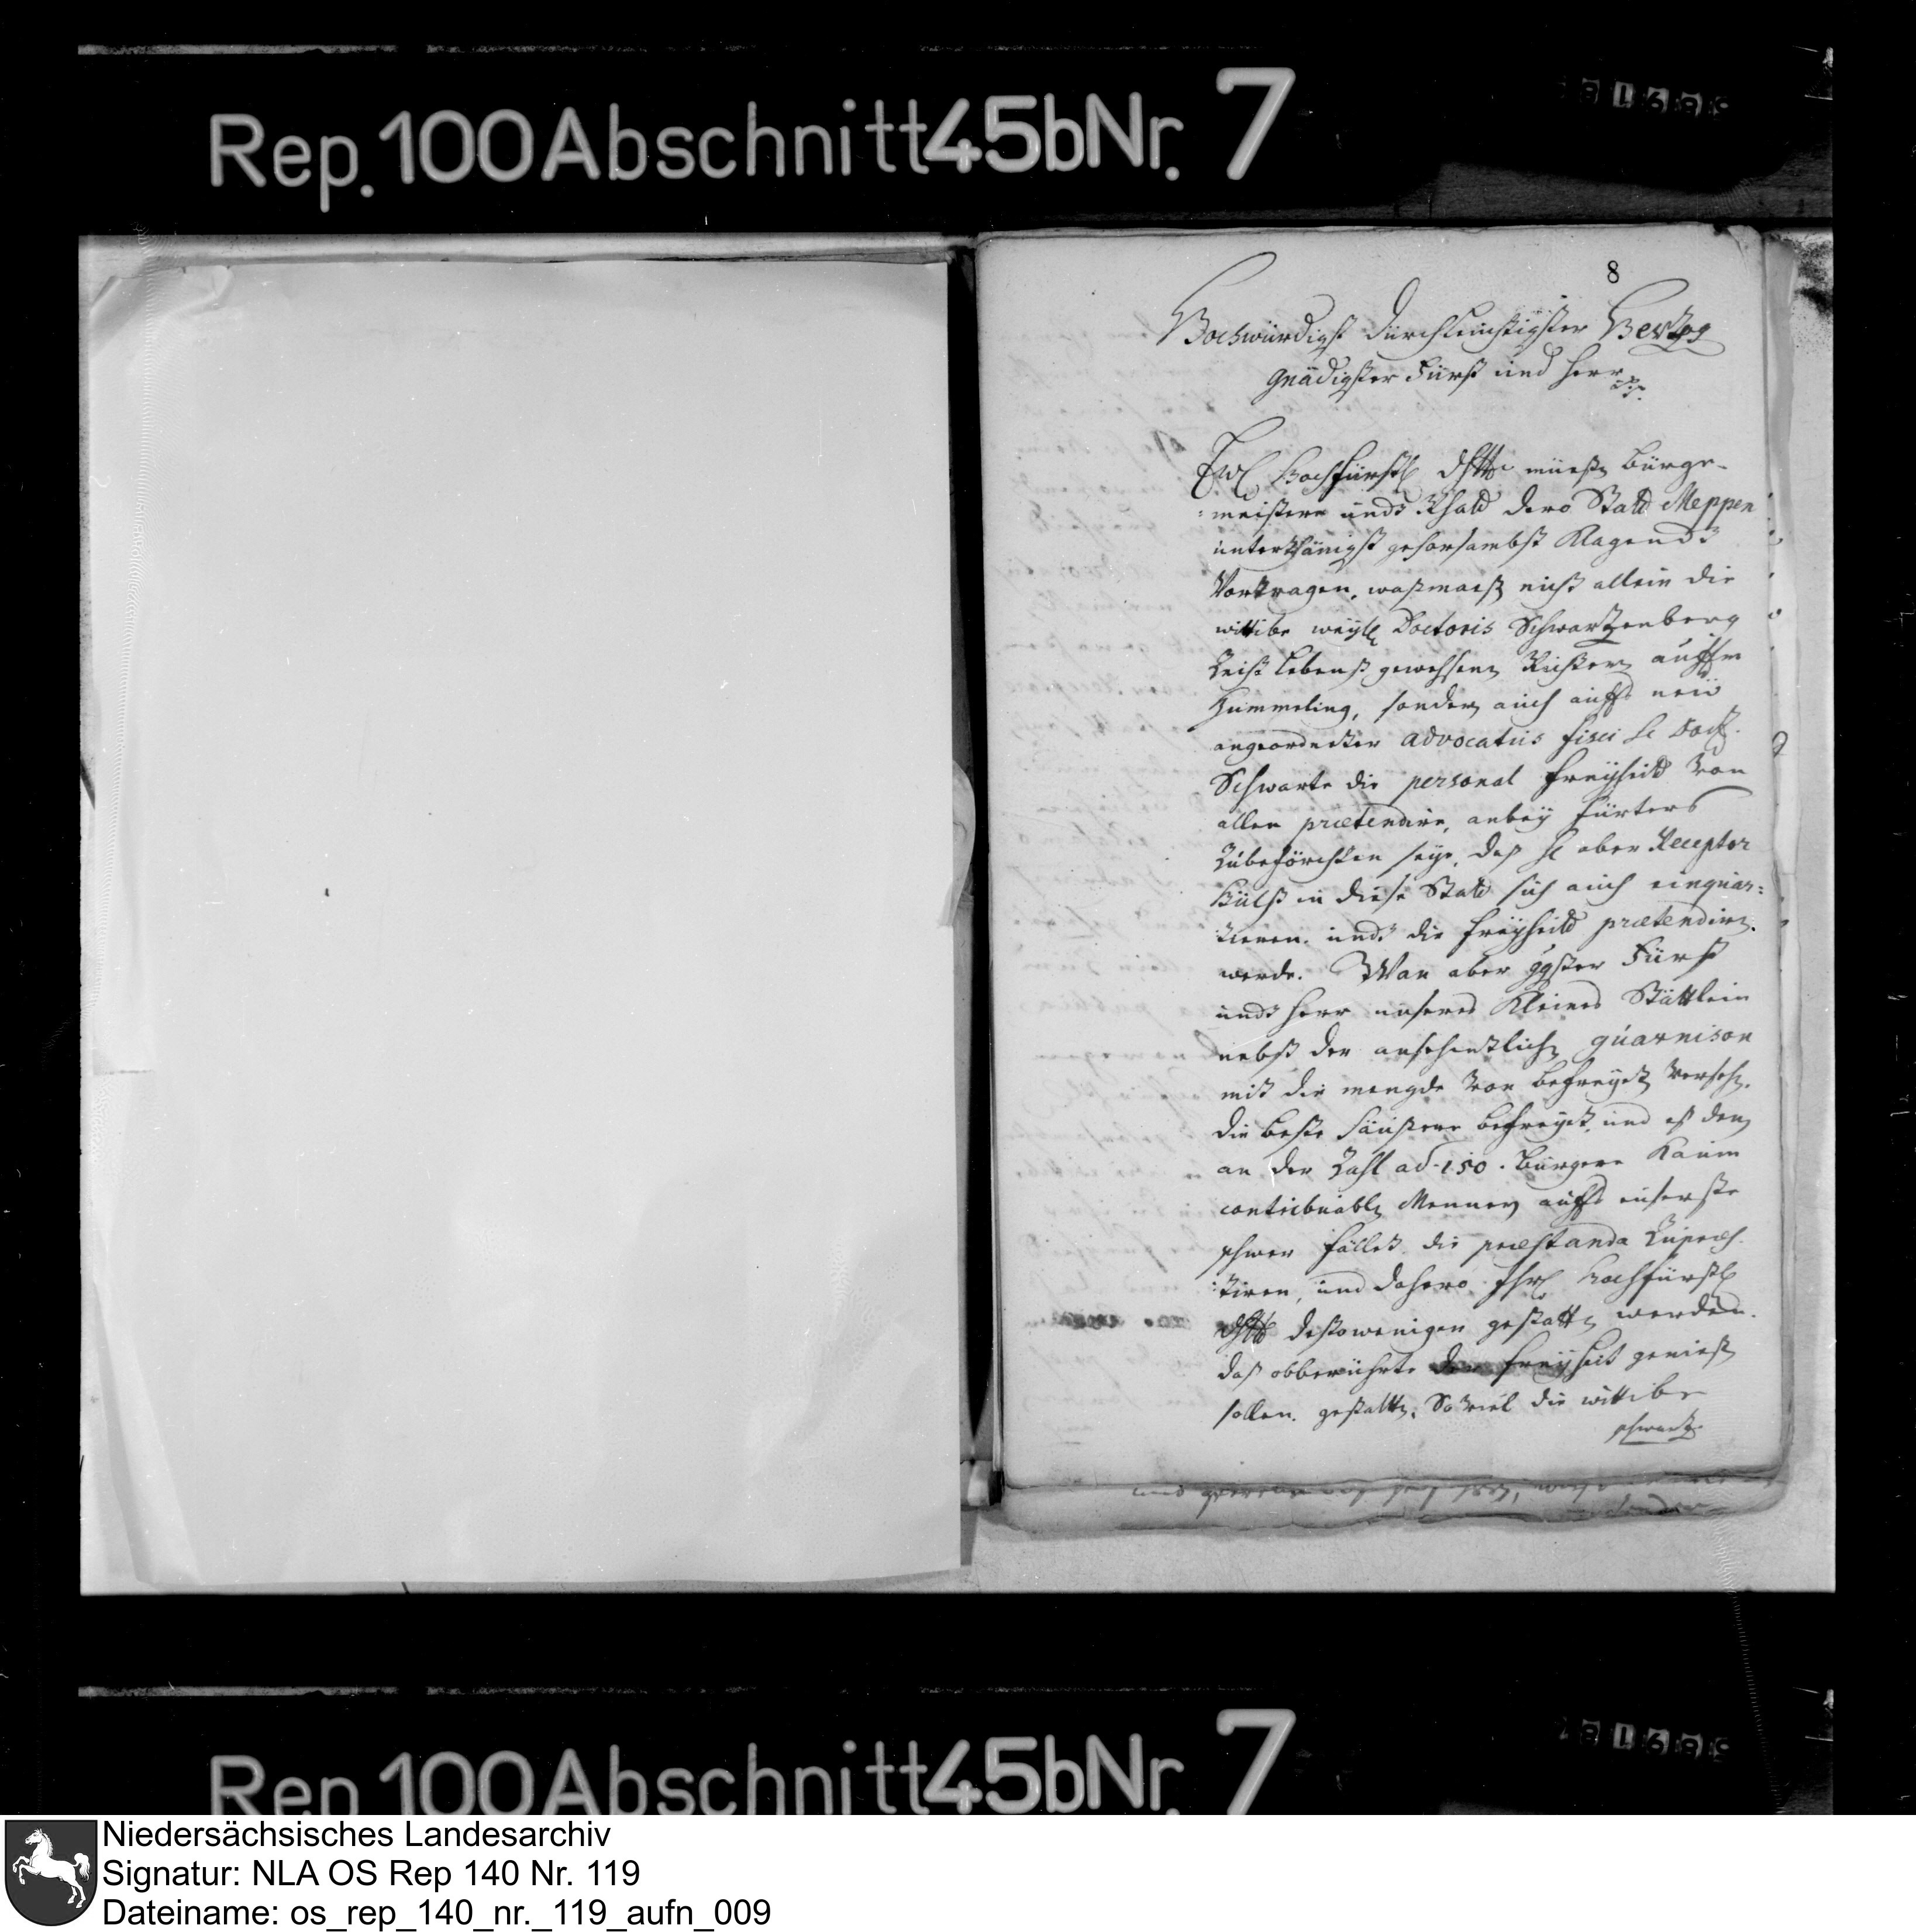 Rep. 100 Abschnitt 45b Nr. 7
8
Hochwürdigst Durchleuchtigster Hertzog
Gnädigster Fürst und Herr
Ew. Hochfürstl. müeßen Bürge-
meistere undt Rhatt dero Statt Meppen
unterthänigst gehorsambst klagendt
vortragen, waßmaeß nicht allein die
wittibe weyl. Doctoris Schwartzenberg
Zeith lebens gewesenen Richtern auffm
Hümmeling, sondern auch auffs neü
angeordneter advocatus fisci H. Doct.
Schwarte die personal freyheitt von
allen prætendire, anbey fürters
zubeförchten seye, daß H. ober Receptor
in diese Statt sich auch einquar-
tieren undt die freyheitt prætendiren
werde. Wan aber ggster Fürst
undt Herr unseres kleines Stättlein
nebst der ansehentlichen guarnison
mit die mengde von befreyeten versehen,
die beste häußere befreyet, und es den
an der Zahl ad 150. Bürgere kaum
contribuable Männer auffs eüserste
schwer fället, die præstanda zupræs-
tiren, und dahero Ihre Hochfürstl.
destoweniger gestatten werden,
daß obberührte freyheit genießen
sollen, gestalten, So viel die wittibe
schwartz-
Rep. 100 Abschnitt 45b Nr. 7
Niedersächsisches Landesarchiv
Signatur: NLA OS Rep 140 Nr. 119
Dateiname: os_rep_140_nr._119_aufn_009